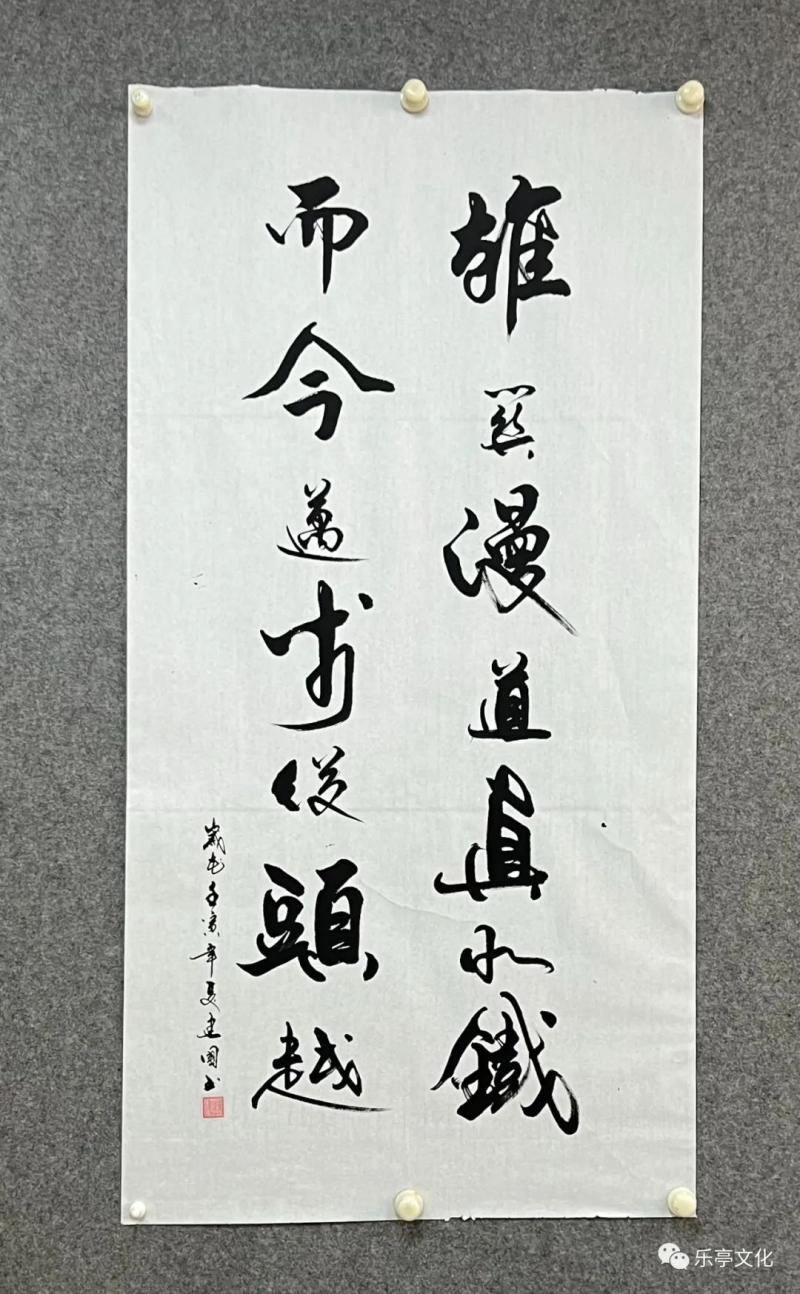 雄關漫道真如鐵
而今邁步從頭越
歲在壬寅年夏建國书
乐亭文化